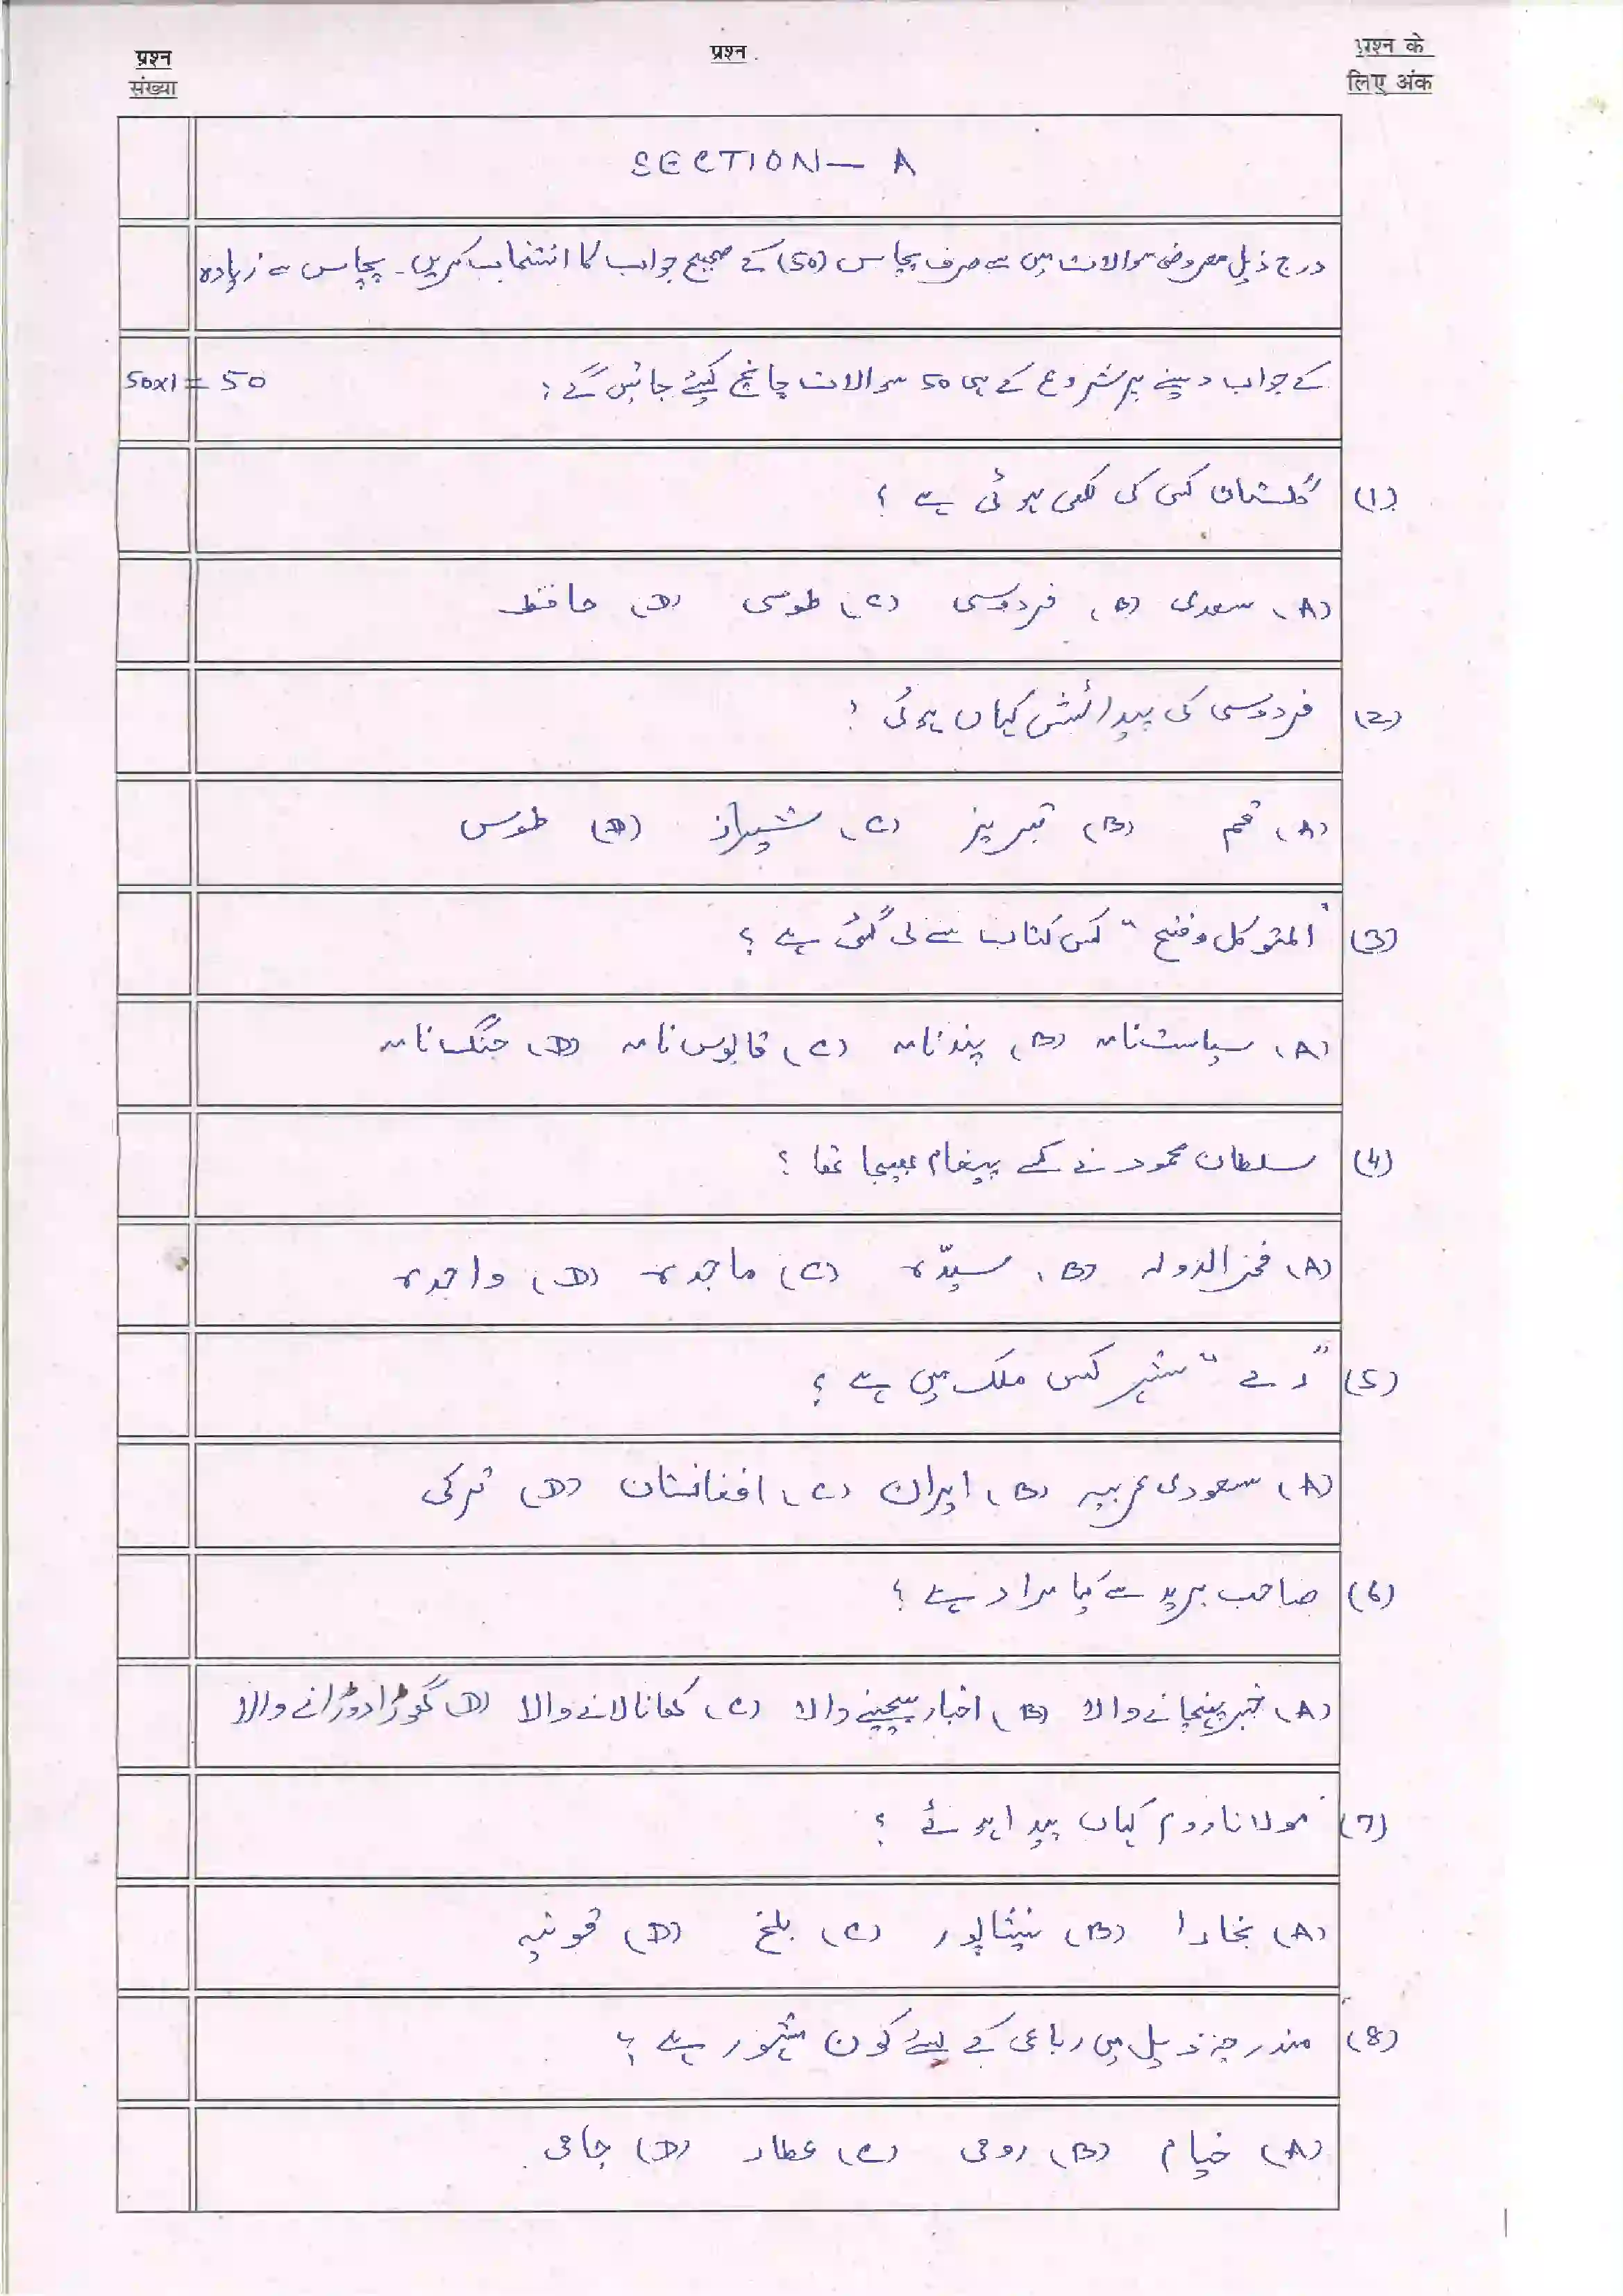 प्रश्न संख्या
प्रश्न
प्रश्न के लिए अंक
SECTION - A
درج ذیل معروضی سوالات میں سے صرف پچاس (50) کے صحیح جواب کا انتخاب کریں۔ پچاس سے زیادہ
کے جواب دینے پر شروع کے ہی 50 سوالات جانچ کیئے جائیں گے : 50x1 = 50
(1) گلستان کس کی لکھی ہوئی ہے ؟
(A) سعدی (B) فردوسی (C) طوسی (D) حافظ
(2) فردوسی کی پیدائش کہاں ہوئی ؟
(A) قم (B) تبریز (C) شیراز (D) طوس
(3) "المتوکل و فتح" کس کتاب سے لی گئی ہے ؟
(A) سیاست نامہ (B) پند نامہ (C) قابوس نامہ (D) جنگ نامہ
(4) سلطان محمود نے کسے پیغام بھیجا تھا ؟
(A) فخر الدولہ (B) سیدّہ (C) ماجدہ (D) واجدہ
(5) "رے" شہر کس ملک میں ہے ؟
(A) سعودی عربیہ (B) ایران (C) افغانستان (D) ترکی
(6) صاحب برید سے کیا مراد ہے ؟
(A) خبر پہنچانے والا (B) اخبار بیچنے والا (C) کھانا لانے والا (D) گھوڑا دوڑانے والا
(7) مولانا روم کہاں پیدا ہوئے ؟
(A) بخارا (B) نیشاپور (C) بلخ (D) قونیہ
(8) مندرجہ ذیل میں رباعی کے لیے کون مشہور ہے ؟
(A) خیام (B) رومی (C) عطار (D) جامی